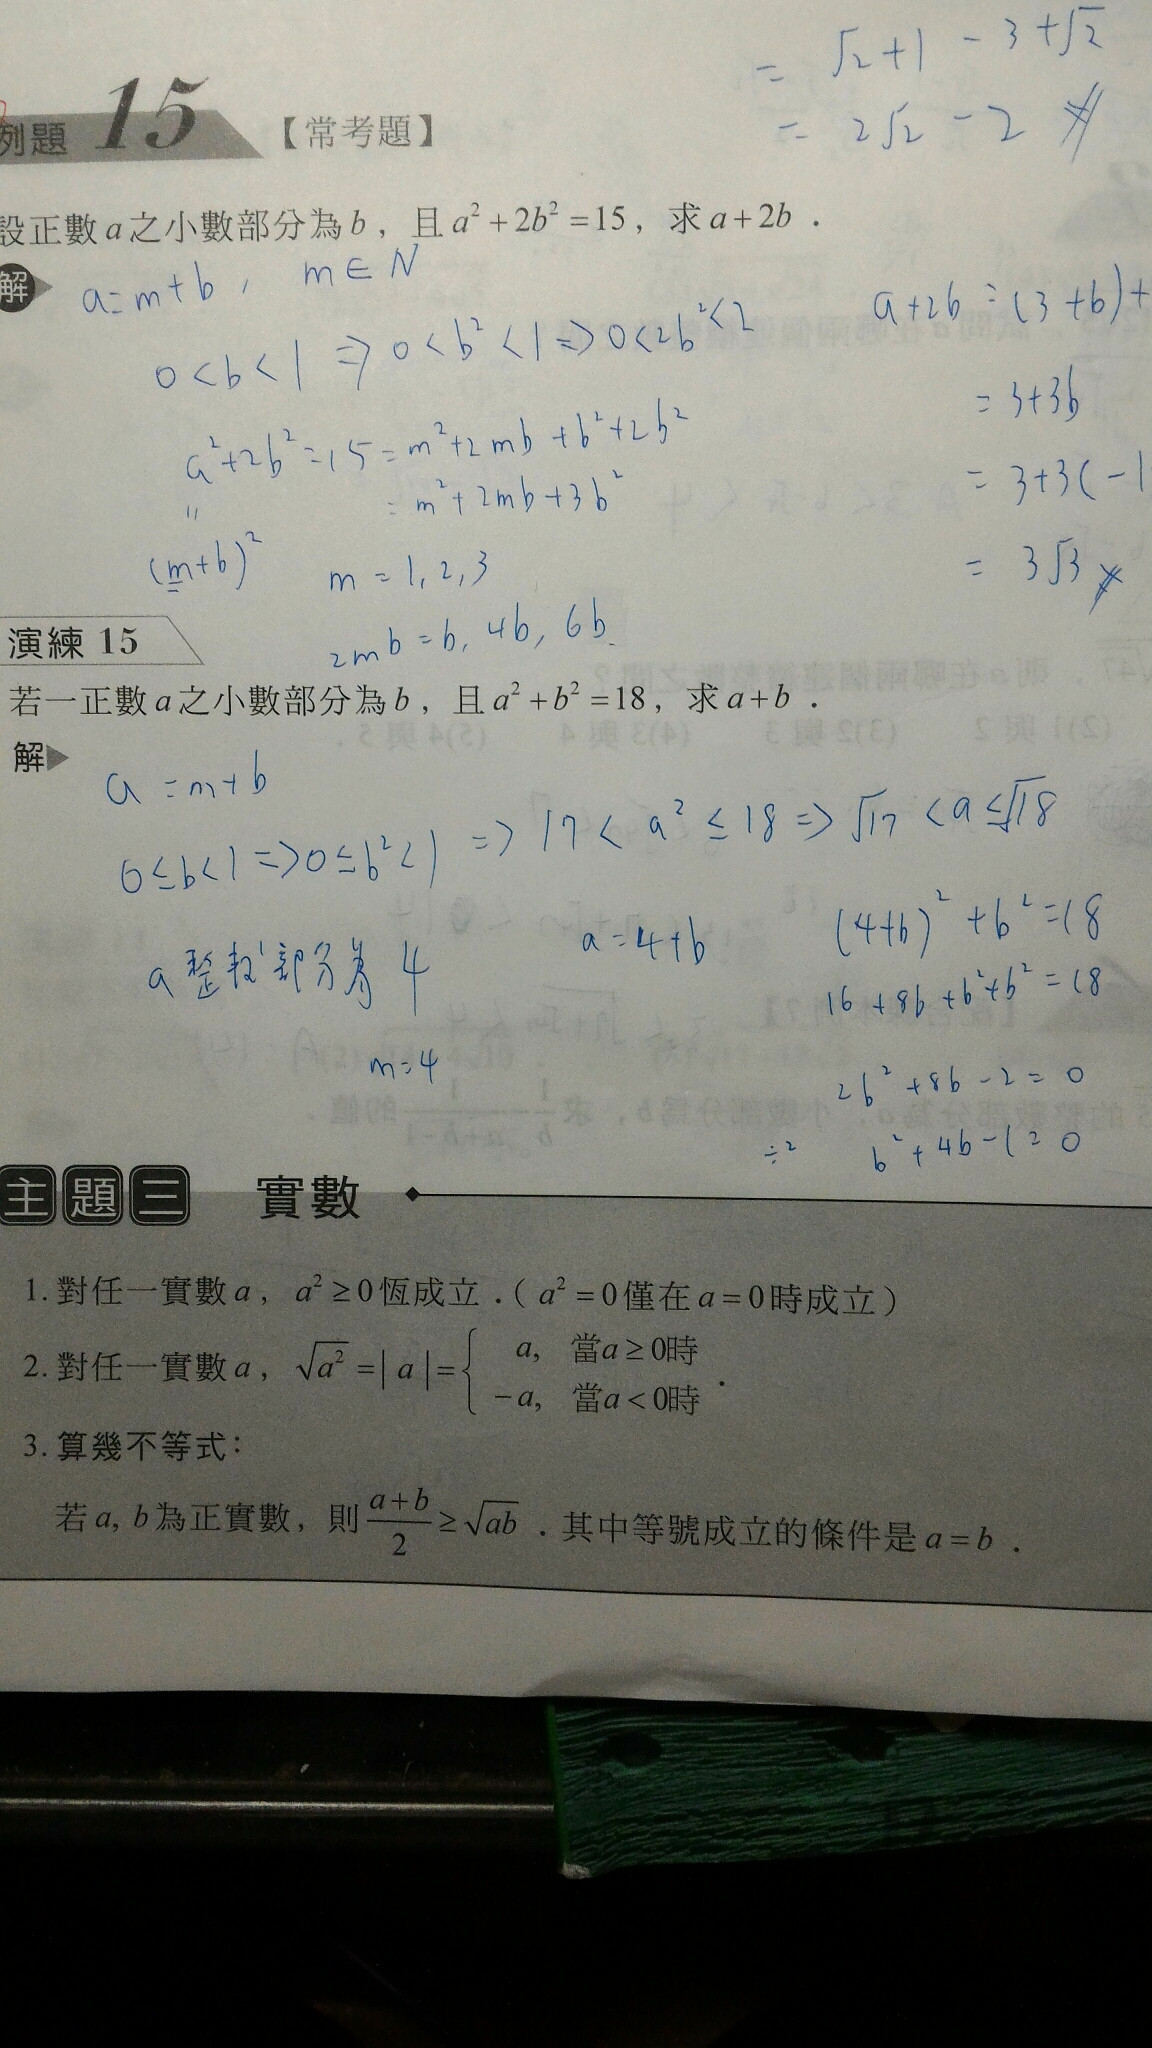 = √2+1 - 3+√2
= 2√2 - 2
例題 15 【常考題】
設正數a之小數部分為b，且a²+2b²=15，求a+2b．
解 a=m+b, m∈N
0<b<1 ⇒ 0<b²<1 ⇒ 0<2b²<2
a²+2b²=15=m²+2mb+b²+2b²
=m²+2mb+3b²
"
(m+b)²
m=1,2,3
2mb=b, 4b, 6b
a+2b=(3+b)+
=3+3b
=3+3(-1
=3√3
演練 15
若一正數a之小數部分為b，且a²+b²=18，求a+b．
解
a=m+b
0≤b<1 ⇒ 0≤b²<1 ⇒ 17<a²≤18 ⇒ √17<a≤√18
a整數部分為4
m=4
a=4+b
(4+b)²+b²=18
16+8b+b²+b²=18
2b²+8b-2=0
÷2 b²+4b-1=0
主題三 實數
1. 對任一實數a，a²≥0恆成立．（a²=0僅在a=0時成立）
2. 對任一實數a，√a²=|a|={ a, 當a≥0時
-a, 當a<0時 ．
3. 算幾不等式：
若a, b為正實數，則 (a+b)/2 ≥ √ab ．其中等號成立的條件是a=b．